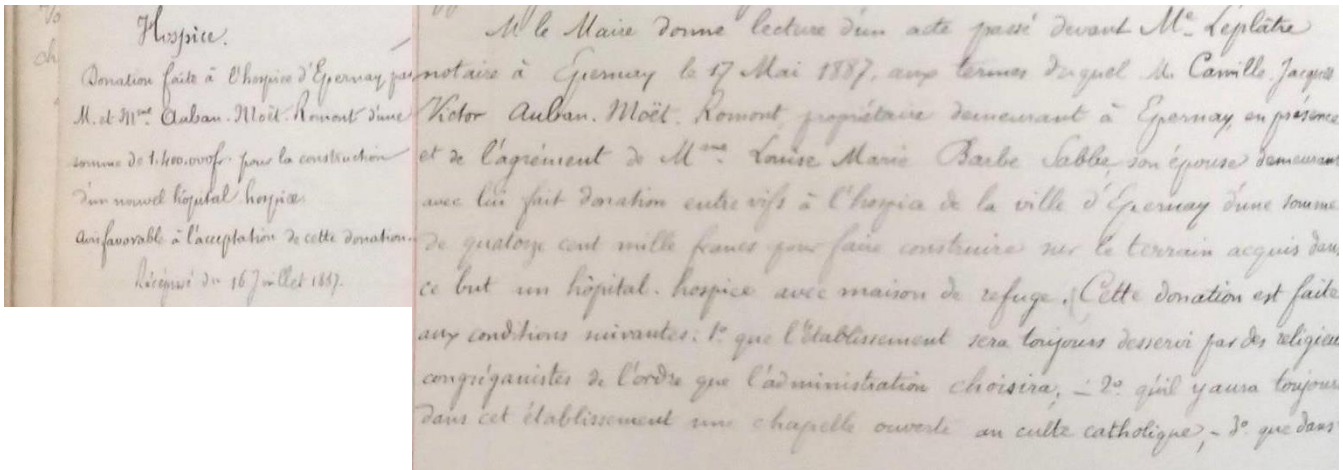 Hospice.
Donation faite à l'hospice d'Epernay par
M. et Mme Auban. Moët. Romont d'une
somme de 1.400.000fr. pour la construction
d'un nouvel hôpital hospice.
Avis favorable à l'acceptation de cette donation.
Récépissé du 16 Juillet 1887.
M le Maire donne lecture d'un acte passé devant Me Leplâtre
notaire à Epernay le 17 Mai 1887, aux termes duquel M. Camille Jacques
Victor Auban. Moët. Romont propriétaire demeurant à Epernay, en présence
et de l'agrément de Mme Louise Marie Barbe Sabbe, son épouse demeurant
avec lui fait donation entre vifs à l'hospice de la ville d'Epernay d'une somme
de quatorze cent mille francs pour faire construire sur le terrain acquis dans
ce but un hôpital. hospice avec maison de refuge. Cette donation est faite
aux conditions suivantes: 1° que l'établissement sera toujours desservi par des religieu
congréganistes de l'ordre que l'administration choisira; - 2° qu'il y aura toujours
dans cet établissement une chapelle ouverte au culte catholique, - 3° que dans